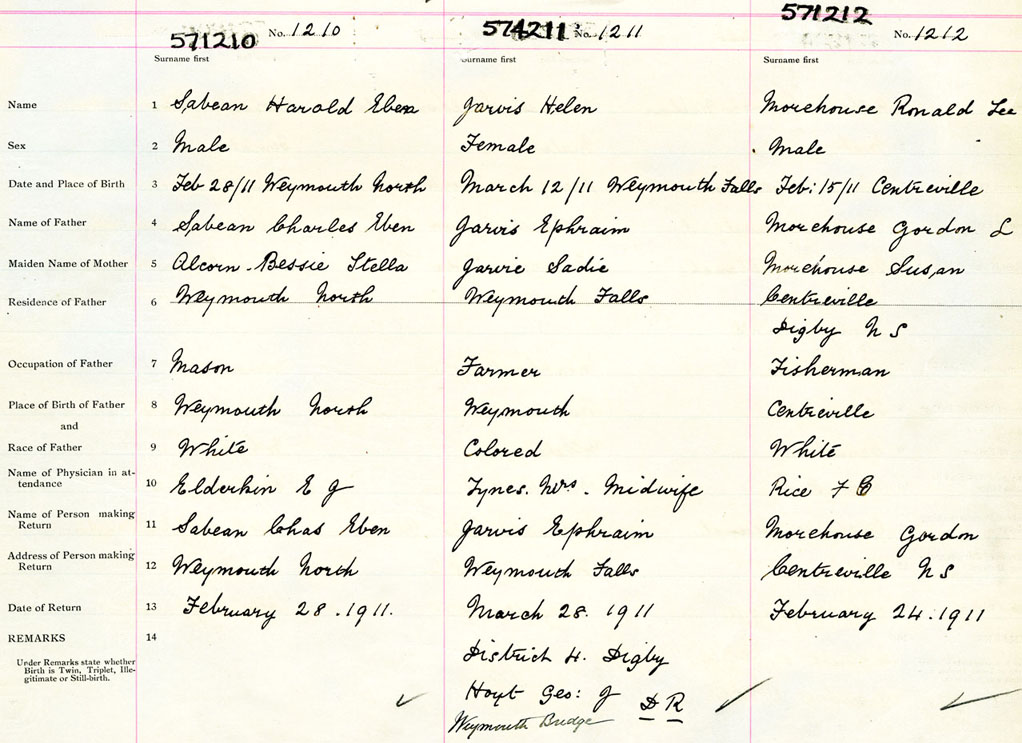 571210 No. 1210 574211 No. 1211 571212 No. 1212
Surname first Surname first Surname first
Name 1 Sabean Harold Eben Jarvis Helen Morehouse Ronald Lee
Sex 2 Male Female Male
Date and Place of Birth 3 Feb 28/11 Weymouth North March 12/11 Weymouth Falls Feb: 15/11 Centreville
Name of Father 4 Sabean Charles Eben Jarvis Ephraim Morehouse Gordon L
Maiden Name of Mother 5 Alcorn. Bessie Stella Jarvie Sadie Morehouse Susan
Residence of Father 6 Weymouth North Weymouth Falls Centreville
Digby N S
Occupation of Father 7 Mason Farmer Fisherman
Place of Birth of Father 8 Weymouth North Weymouth Centreville
and
Race of Father 9 White Colored White
Name of Physician in at-
tendance 10 Elderkin E J Tynes. Mrs. Midwife Rice F
Name of Person making
Return 11 Sabean Chas Eben Jarvis Ephraim Morehouse Gordon
Address of Person making
Return 12 Weymouth North Weymouth Falls Centreville N S
Date of Return 13 February 28. 1911. March 28. 1911 February 24. 1911
REMARKS 14
Under Remarks state whether
Birth is Twin, Triplet, Ille-
gitimate or Still-birth.
District 4. Digby
Hoyt Geo: J D R
Weymouth Bridge